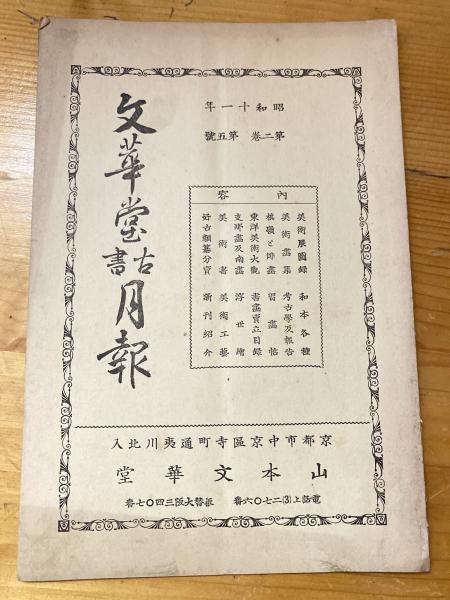 昭和十一年
第二卷 第五號
文華堂古書月報
內容
美術展圖録 和本各種
美術畫集 考古學及報告
と俳畫 習畫帖
東洋美術大觀 書畫賣立目録
支那畫及南畫 浮世繪
美術書 美術工藝
好古類纂分賣 新刊紹介
京都市中京區寺町通夷川北入
山本文華堂
電話上(3)二七〇六番 振替大阪三四〇七番